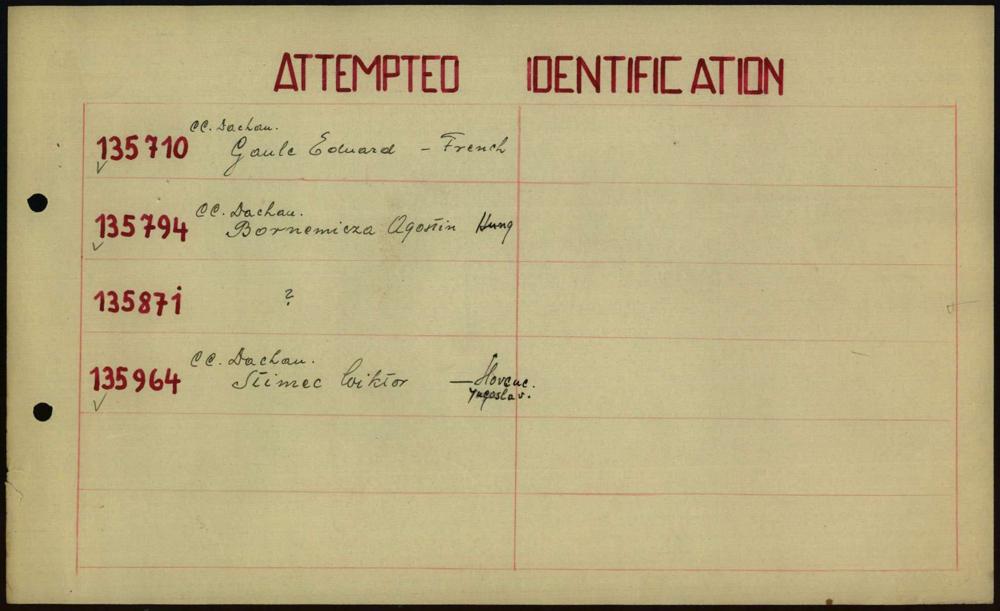 ATTEMPTED IDENTIFICATION
CC. Dachau.
135710 Gaule Eduard - French
CC. Dachau.
135794 Bornemicza Agostin Hung
135871 ?
CC. Dachau.
135964 Stimec Wiktor — Slovene.
Yugoslav.